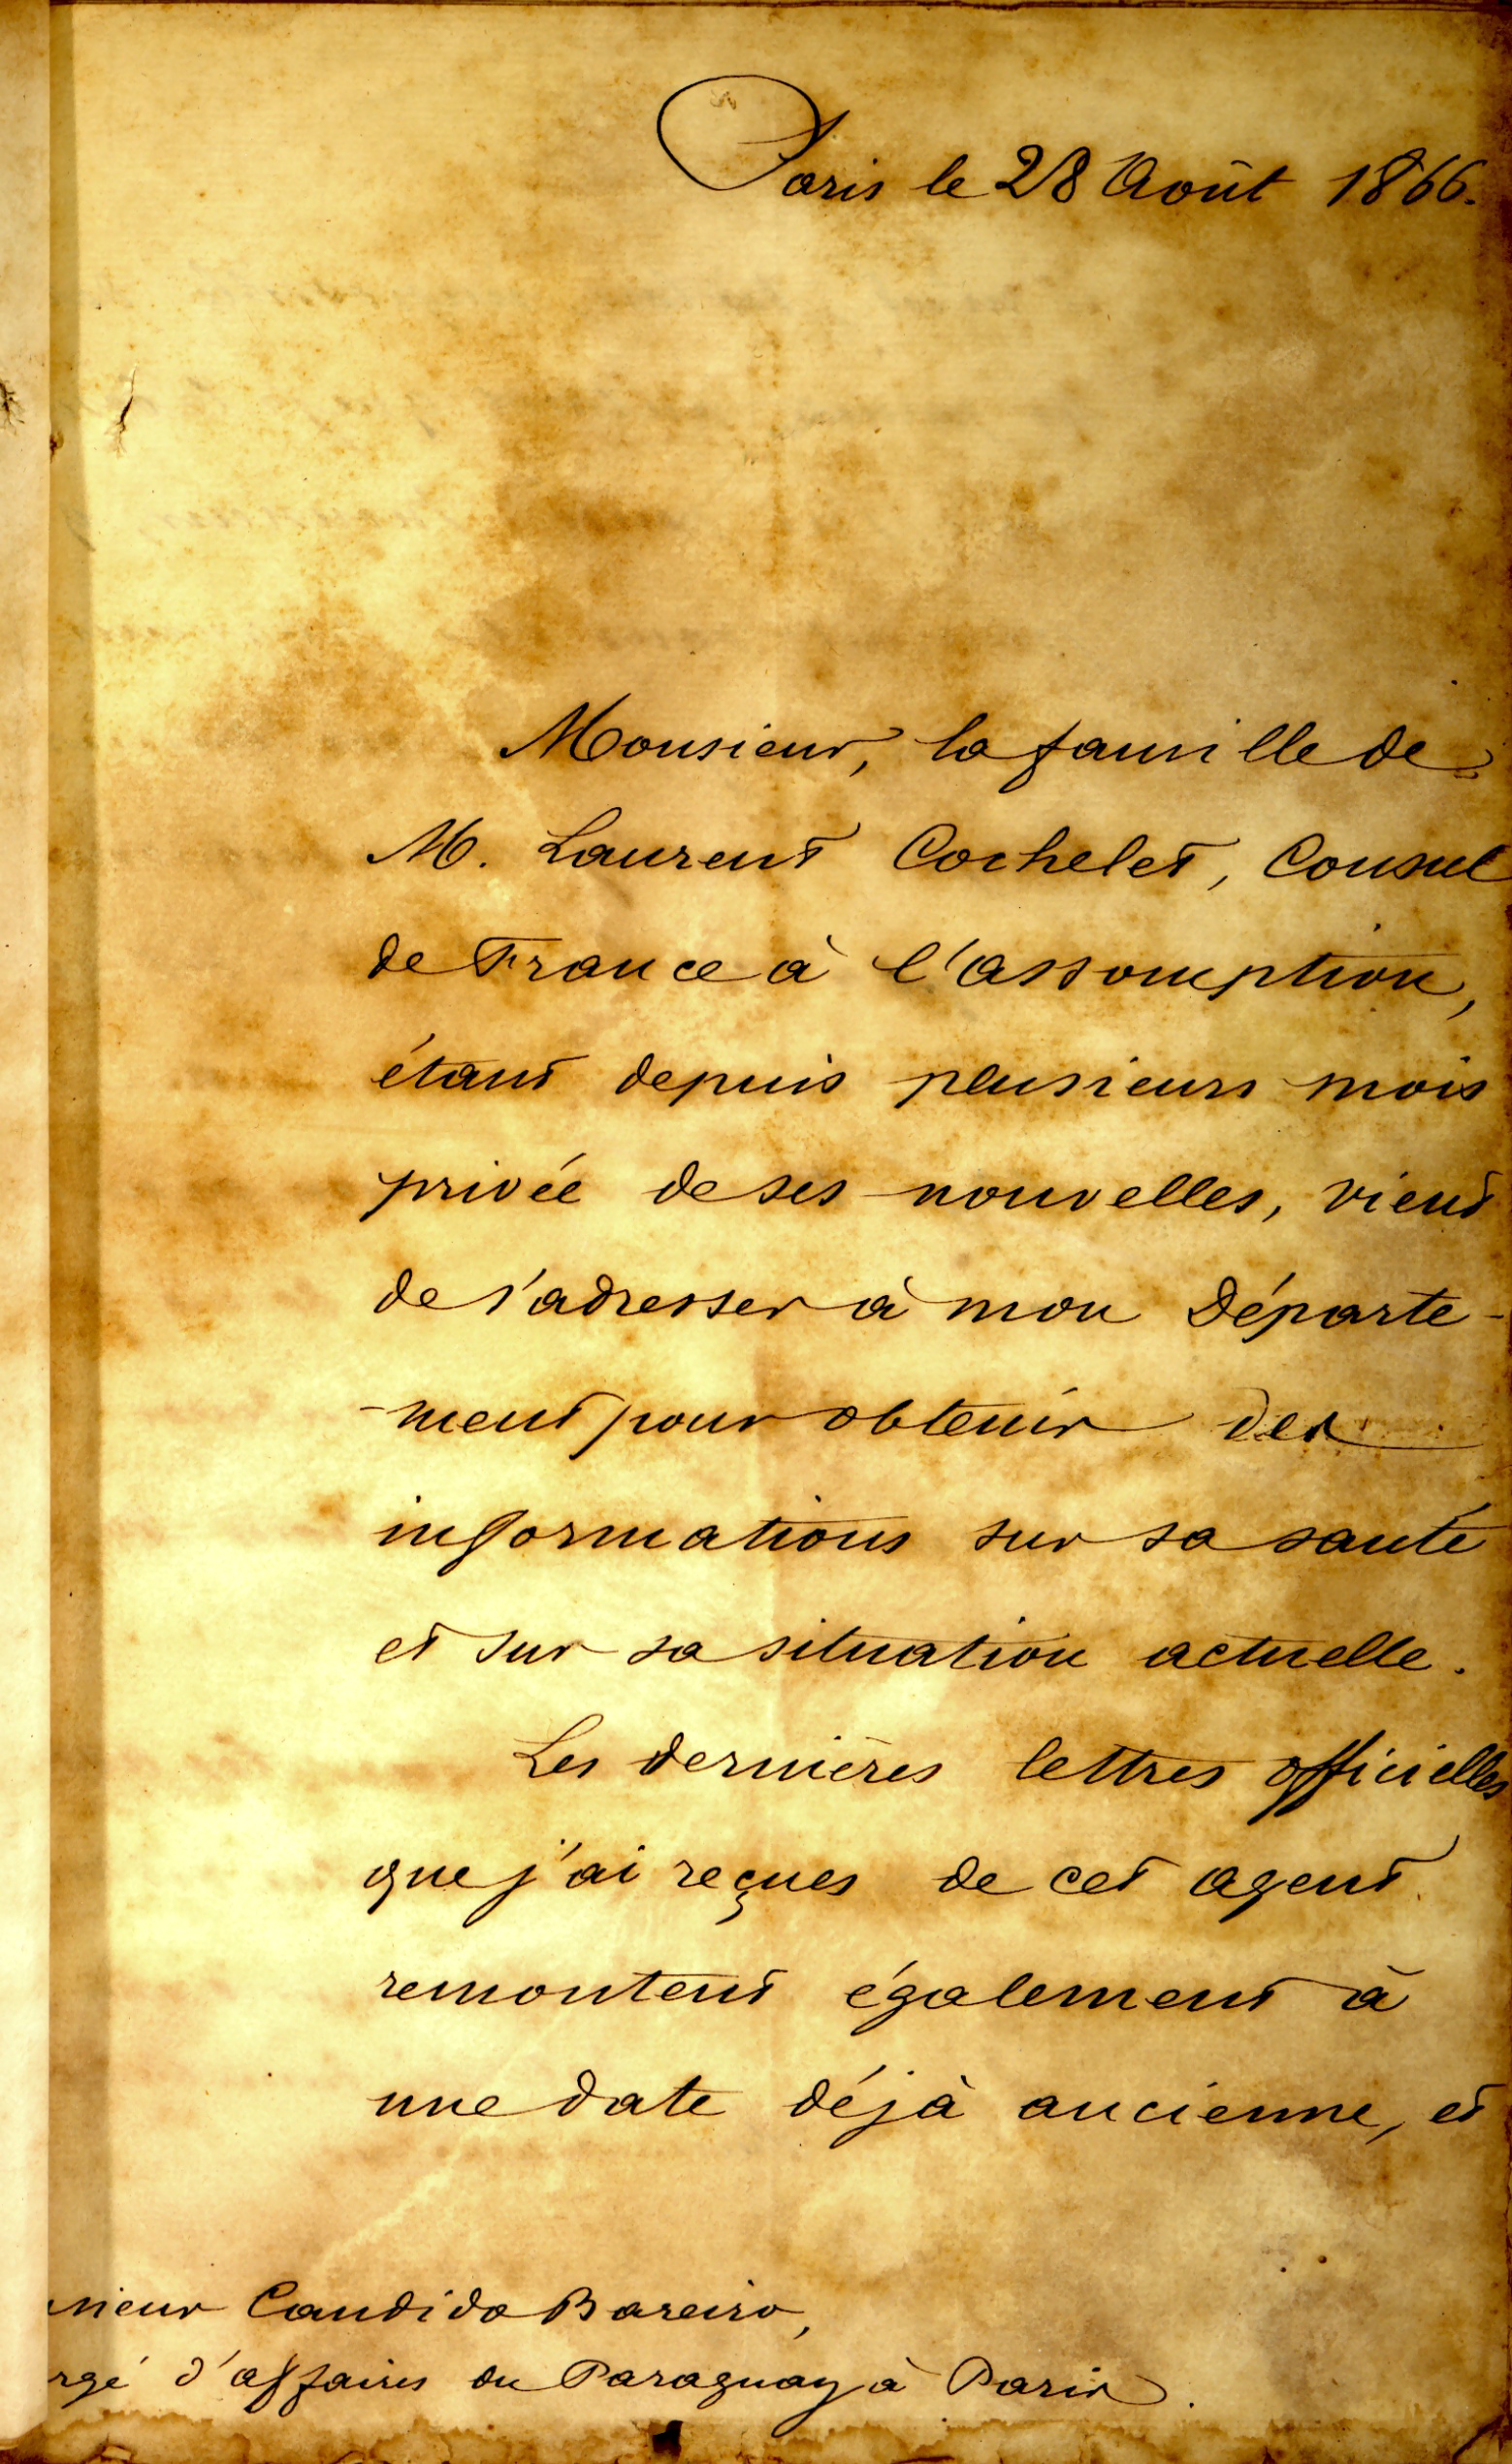 Paris le 28 Août 1866.
Monsieur, la famille de
M. Laurent Cochelet, Consul
de France à l'assomption,
étant depuis plusieurs mois
privée de ses nouvelles, vient
de s'adresser à mon Départe-
-ment pour obtenir des
informations sur sa santé
et sur sa situation actuelle.
Les dernières lettres officielles
que j'ai reçues de cet agent
remontent également à
une date déjà ancienne, et
sieur Candido Bareiro,
rgé d'affaires du Paraguay à Paris.